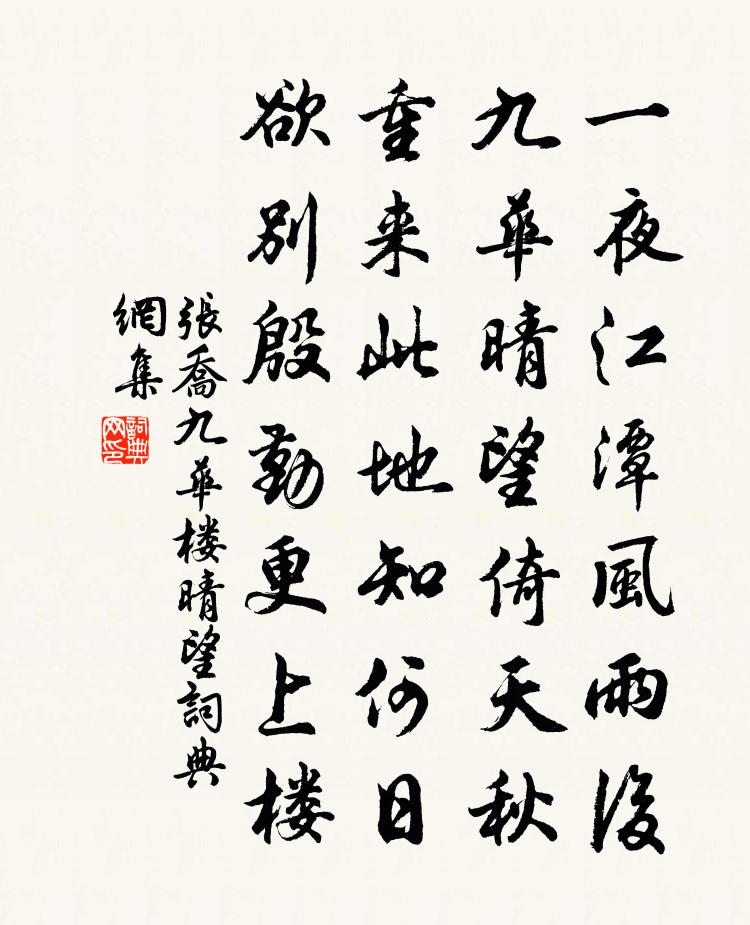 一夜江潭風雨後
九華晴望倚天秋
重来此地知何日
欲别殷勤更上楼
張喬九華楼晴望詞典
網集
詞典
网印